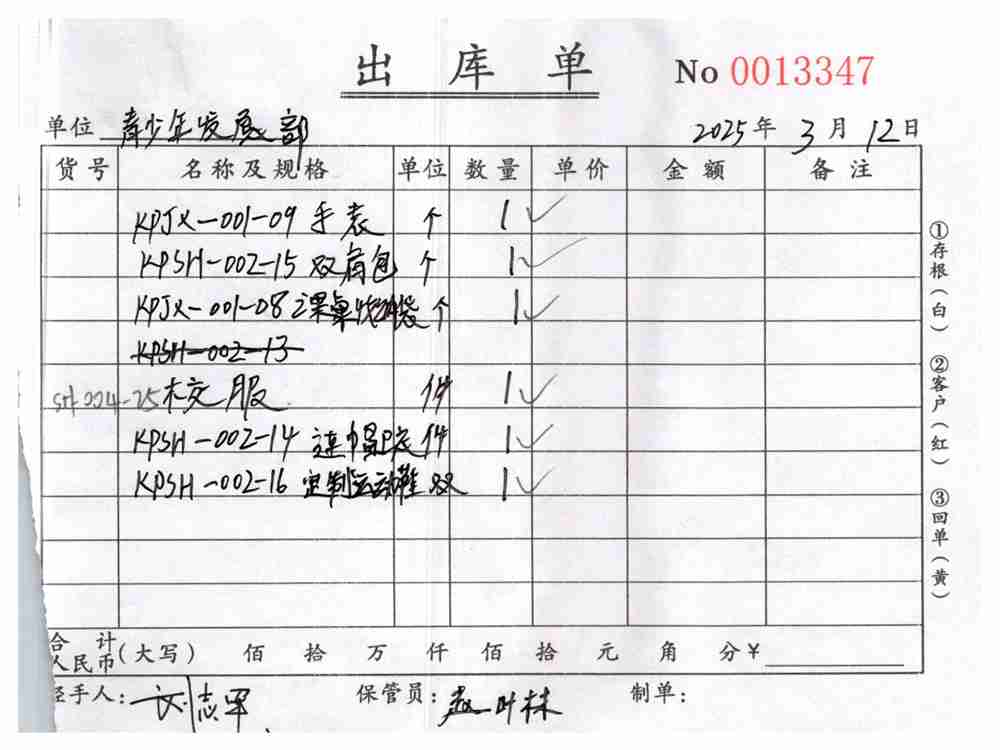 出库单 No 0013347
单位 青少年发展部 2025年3月12日
货号 名称及规格 单位 数量 单价 金额 备注
KPJX-001-09 手表 个 1 ✓
KPSH-002-15 双肩包 个 1 ✓
KPJX-001-08 课桌收纳袋 个 1 ✓
KPSH-002-13
SH-004-25 校服 件 1 ✓
KPSH-002-14 连帽卫衣 件 1 ✓
KPSH-002-16 定制运动鞋 双 1 ✓
合计
人民币(大写) 佰 拾 万 仟 佰 拾 元 角 分¥
经手人: 刘志军 保管员: 赵叶林 制单:
①存根(白) ②客户(红) ③回单(黄)